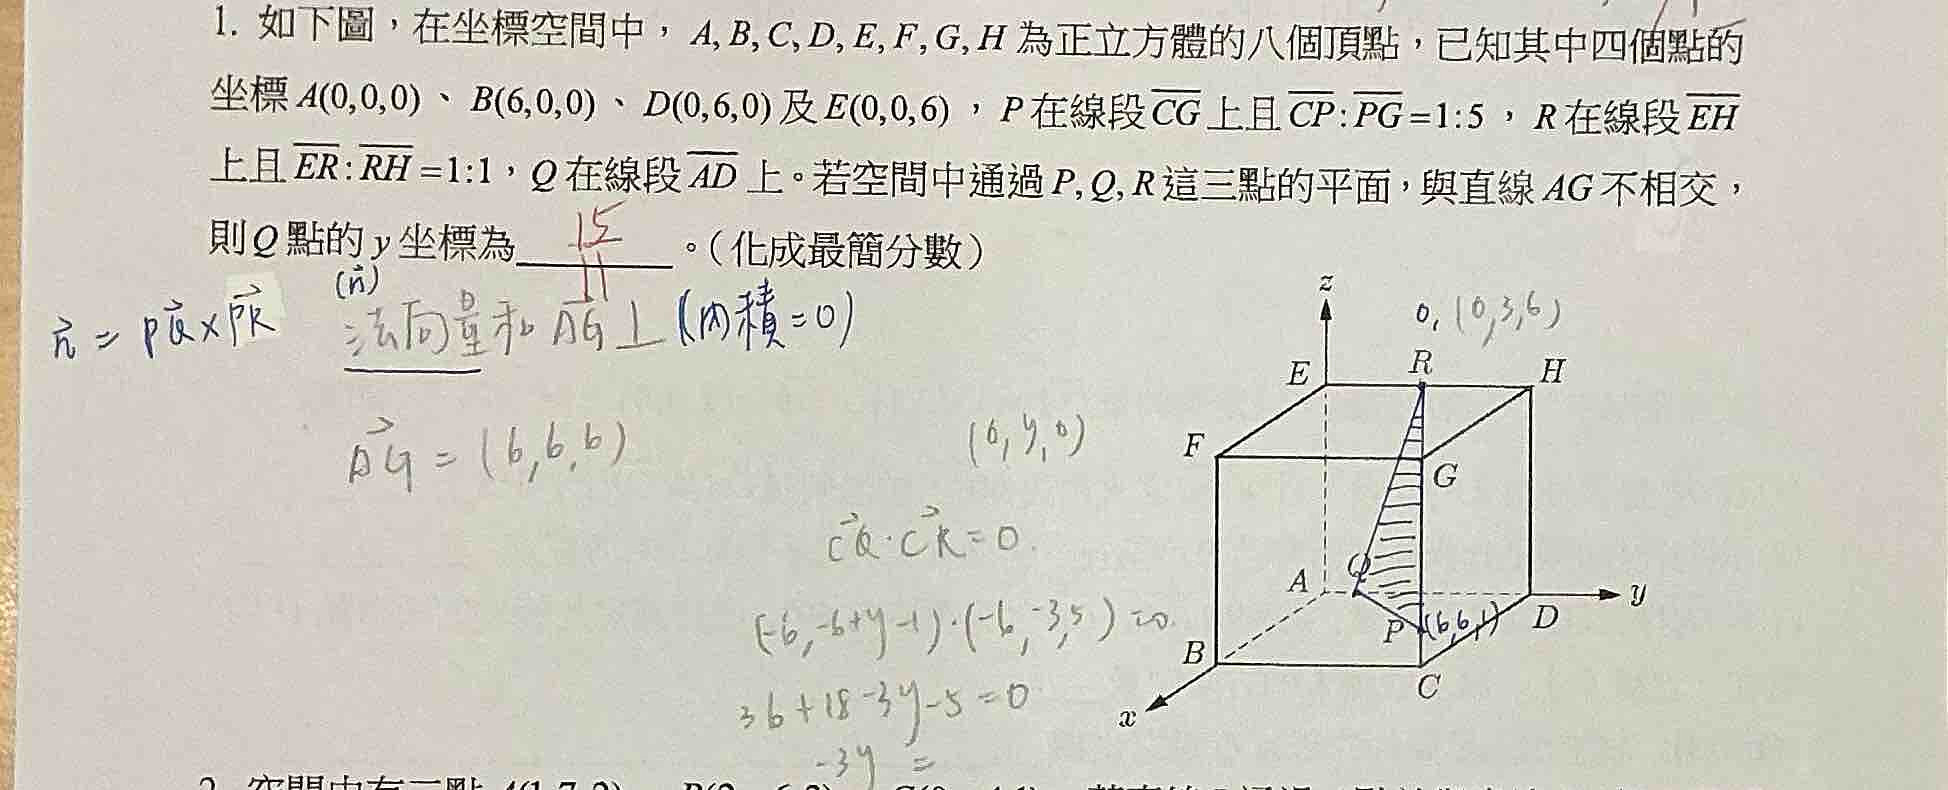 1. 如下圖，在坐標空間中，A, B, C, D, E, F, G, H 為正立方體的八個頂點，已知其中四個點的
坐標 A(0,0,0)、B(6,0,0)、D(0,6,0) 及 E(0,0,6)，P 在線段 \overline{CG} 上且 \overline{CP}:\overline{PG}=1:5，R 在線段 \overline{EH}
上且 \overline{ER}:\overline{RH}=1:1，Q 在線段 \overline{AD} 上。若空間中通過 P, Q, R 這三點的平面，與直線 AG 不相交，
則 Q 點的 y 坐標為 15/11 。(化成最簡分數)
(n⃗)
n⃗ = PQ⃗ × PR⃗ 法向量和 AG⃗ ⊥ (內積=0)
z
0, (0,3,6)
E R H
AG⃗ = (6,6,6)
(0, y, 0)
F G
CQ⃗ · CR⃗ = 0.
A Q y
(-6, -6+y -1)·(-6, -3, 5) = 0.
P (6,6,1) D
B
C
36+18-3y-5=0
x
-3y =